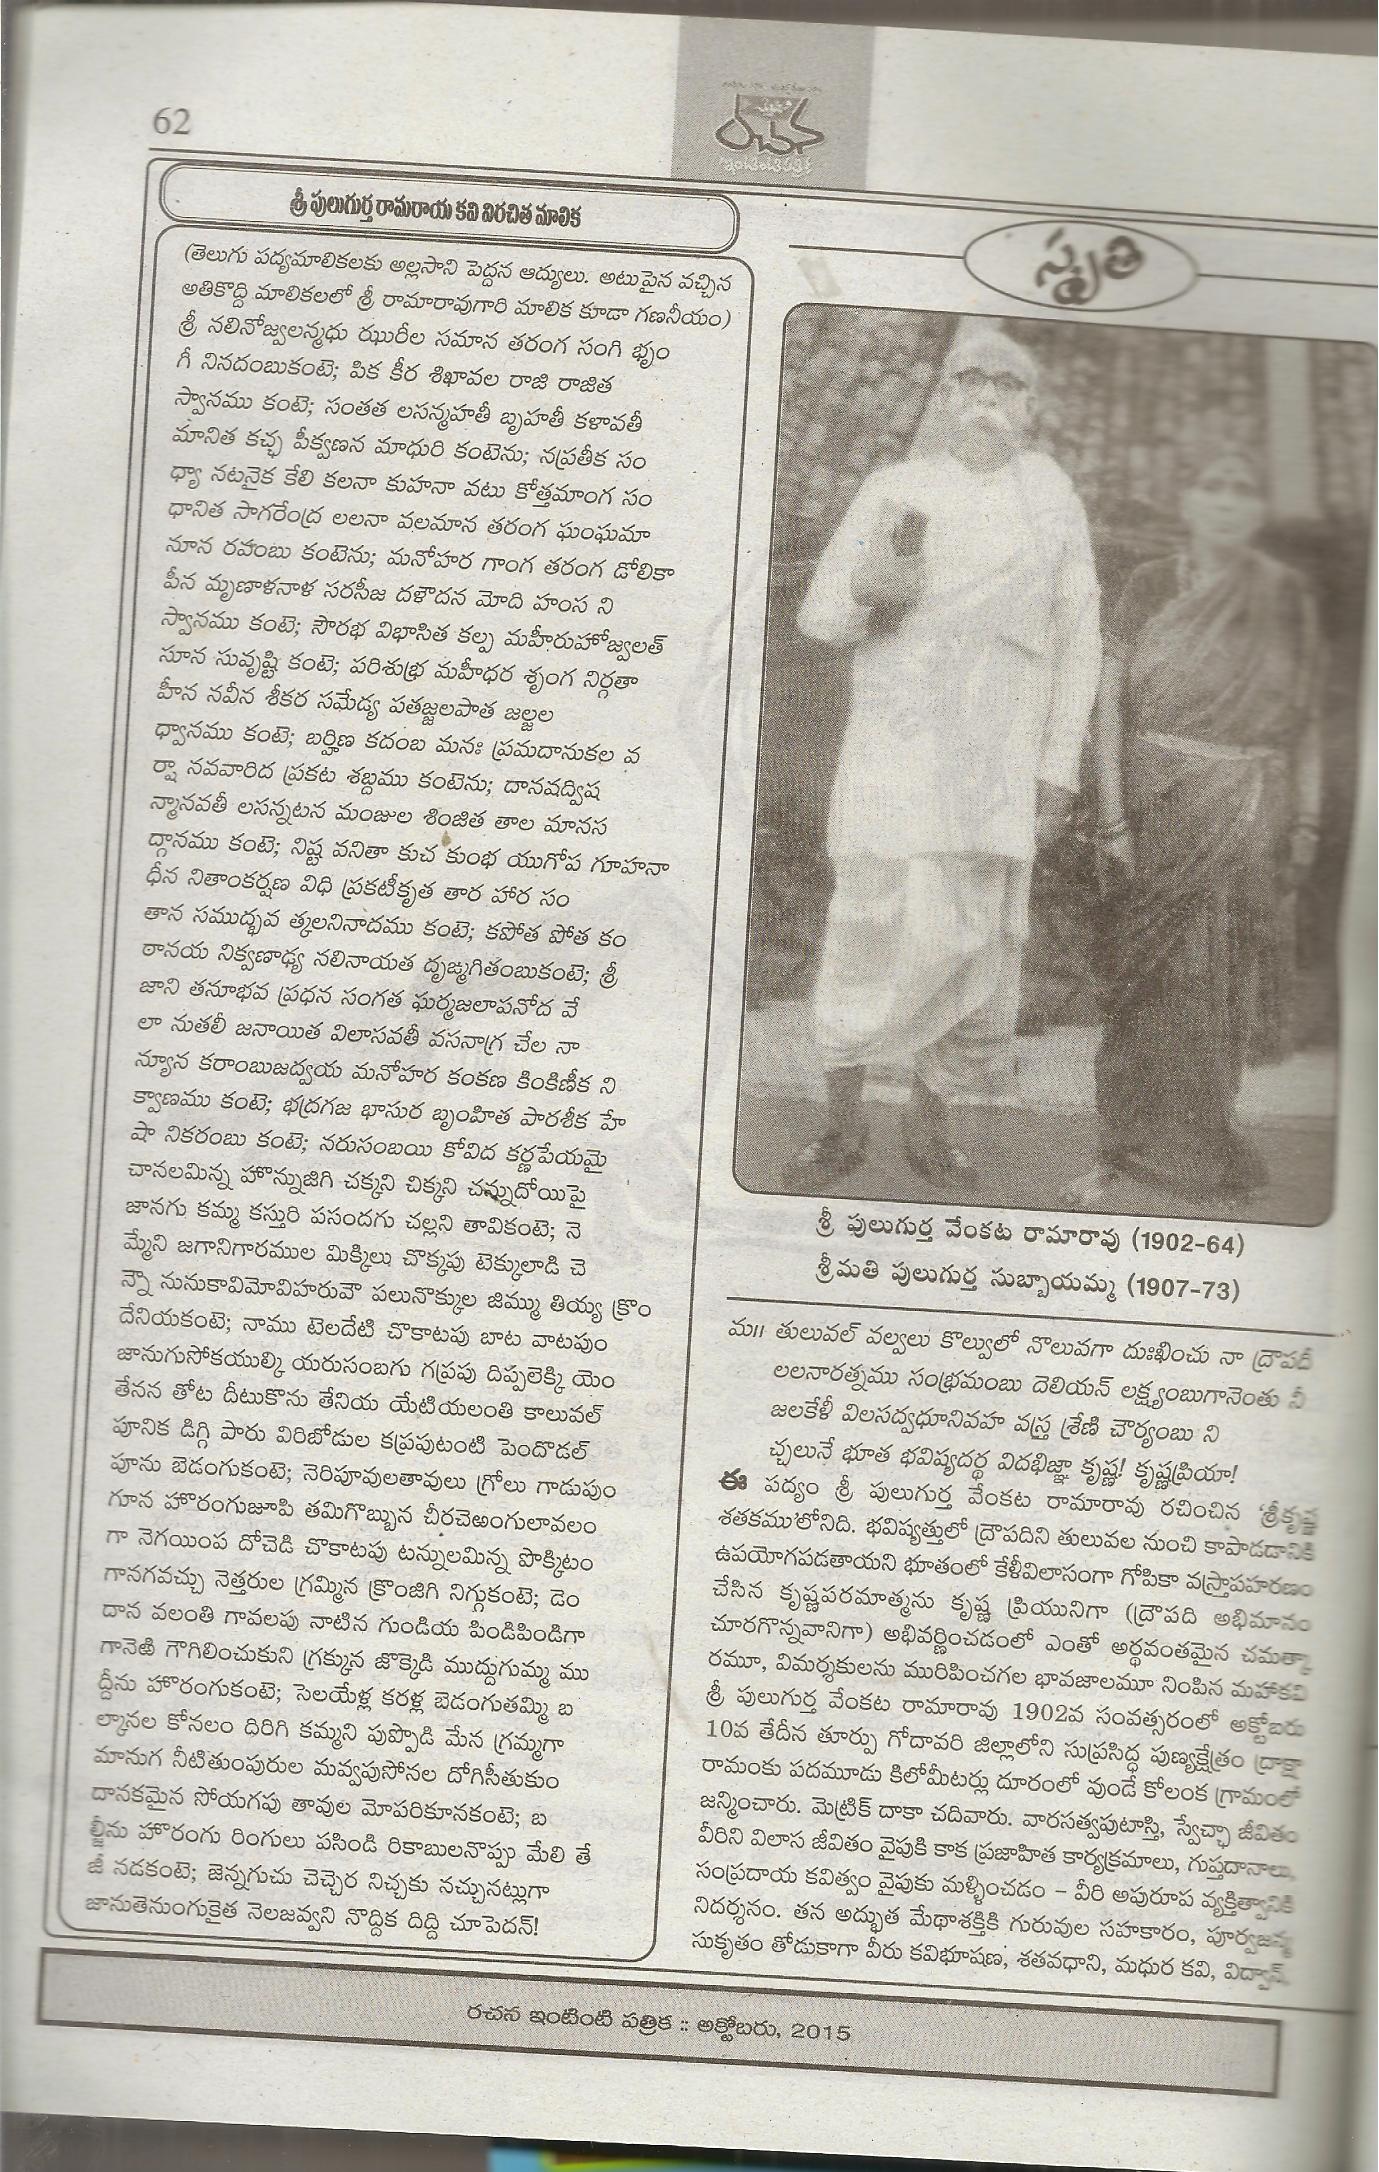 62
రచన
శ్రీ పులుగుర్త రామరాయ కవి విరచిత మాలిక
(తెలుగు పద్యమాలికలకు అల్లసాని పెద్దన ఆద్యులు. అటుపైన వచ్చిన
అతికొద్ది మాలికలలో శ్రీ రామారావుగారి మాలిక కూడా గణనీయం)
శ్రీ నలినోజ్వలన్మధు ఝురీల సమాన తరంగ సంగి భృం
గీ నినదంబుకంటె; పిక కీర శిఖావల రాజి రాజిత
స్వానము కంటె; సంతత లసన్మహతీ బృహతీ కళావతీ
మానిత కచ్ఛ పీక్వణన మాధురి కంటెను; నప్రతీక సం
ధ్యా నటనైక కేలి కలనా కుహనా వటు కోత్తమాంగ సం
ధానిత సాగరేంద్ర లలనా వలమాన తరంగ ఘంఘమా
నూన రవంబు కంటెను; మనోహర గాంగ తరంగ డోలికా
పీన మృణాళనాళ సరసీజ దళౌదన మోది హంస ని
స్వానము కంటె; సౌరభ విభాసిత కల్ప మహీరుహోజ్వలత్
సూన సువృష్టి కంటె; పరిశుభ్ర మహీధర శృంగ నిర్గతా
హీన నవీన శీకర సమేడ్య పతజ్జలపాత జల్జల
ధ్వానము కంటె; బర్హిణ కదంబ మనః ప్రమదానుకల వ
ర్షా నవవారిద ప్రకట శబ్దము కంటెను; దానవద్విష
న్మానవతీ లసన్నటన మంజుల శింజిత తాల మానస
ద్గానము కంటె; నిష్ట వనితా కుచ కుంభ యుగోప గూహనా
ధీన నితాంకర్షణ విధి ప్రకటీకృత తార హార సం
తాన సముద్భవ త్కలనినాదము కంటె; కపోత పోత కం
ఠానయ నిక్వణాఢ్య నలినాయత దృఙ్మగితంబుకంటె; శ్రీ
జాని తనూభవ ప్రధన సంగత ఘర్మజలాపనోద వే
లా నుతలీ జనాయిత విలాసవతీ వసనాగ్ర చేల నా
న్యూన కరాంబుజద్వయ మనోహర కంకణ కింకిణీక ని
క్వాణము కంటె; భద్రగజ భాసుర బృంహిత పారశీక హే
షా నికరంబు కంటె; నరుసంబయి కోవిద కర్ణపేయమై
చానలమిన్న హొన్నుజిగి చక్కని చిక్కని చన్నుదోయిపై
జానగు కమ్మ కస్తురి పసందగు చల్లని తావికంటె; నె
మ్మేని జగానిగారముల మిక్కిలు చొక్కపు టెక్కులాడి చె
న్నౌ నునుకావిమోవిహరువౌ పలునొక్కుల జిమ్ము తియ్య క్రొం
దేనియకంటె; నాము టెలదేటి చొకాటపు బాట వాటపుం
జానుగుసోకయుల్కి యరుసంబగు గప్రపు దిప్పలెక్కి యెం
తేనన తోట దీటుకొను తేనియ యేటియలంతి కాలువల్
పూనిక డిగ్గి పారు విరిబోడుల కప్రపుటంటి పెందొడల్
పూను బెడంగుకంటె; నెరిపూవులతావులు గ్రోలు గాడుపుం
గూన హొరంగుజూపి తమిగొబ్బున చీరచెఱంగులావలం
గా నెగయింప దోచెడి చొకాటపు టన్నులమిన్న పొక్కిటం
గానగవచ్చు నెత్తరుల గ్రమ్మిన క్రొంజిగి నిగ్గుకంటె; డెం
దాన వలంతి గావలపు నాటిన గుండియ పిండిపిండిగా
గానెఱి గౌగిలించుకుని గ్రక్కున జొక్కెడి ముద్దుగుమ్మ ము
ద్దీను హొరంగుకంటె; సెలయేళ్ల కరళ్ల బెడంగుతమ్మి బ
ల్కానల కోనలం దిరిగి కమ్మని పుప్పొడి మేన గ్రమ్మగా
మానుగ నీటితుంపురుల మవ్వపుసోనల దోగిసీతుకుం
దానకమైన సోయగపు తావుల మోపరికూనకంటె; బ
ల్జీను హొరంగు రింగులు పసిండి రికాబులనొప్పు మేలి తే
జీ నదకంటె; జెన్నగుచు చెచ్చెర నిచ్చకు నచ్చునట్లుగా
జానుతెనుంగుకైత నెలజవ్వని నొద్దిక దిద్ది చూపెదన్!
స్మృతి
శ్రీ పులుగుర్త వేంకట రామారావు (1902-64)
శ్రీమతి పులుగుర్త సుబ్బాయమ్మ (1907-73)
మ॥ తులువల్ వల్వలు కొల్వులో నొలువగా దుఃఖించు నా ద్రౌపదీ
లలనారత్నము సంభ్రమంబు దెలియన్ లక్ష్యంబుగానెంతు నీ
జలకేళీ విలసద్వధూనివహ వస్త్ర శ్రేణి చౌర్యంబు ని
చ్చలునే భూత భవిష్యదర్థ విదభిజ్ఞా కృష్ణ! కృష్ణప్రియా!
ఈ పద్యం శ్రీ పులుగుర్త వేంకట రామారావు రచించిన 'శ్రీకృష్ణ
శతకము'లోనిది. భవిష్యత్తులో ద్రౌపదిని తులువల నుంచి కాపాడడానికి
ఉపయోగపడతాయని భూతంలో కేళీవిలాసంగా గోపికా వస్త్రాపహరణం
చేసిన కృష్ణపరమాత్మను కృష్ణ ప్రియునిగా (ద్రౌపది అభిమానం
చూరగొన్నవానిగా) అభివర్ణించడంలో ఎంతో అర్థవంతమైన చమత్కా
రమూ, విమర్శకులను మురిపించగల భావజాలమూ నింపిన మహాకవి
శ్రీ పులుగుర్త వేంకట రామారావు 1902వ సంవత్సరంలో అక్టోబరు
10వ తేదీన తూర్పు గోదావరి జిల్లాలోని సుప్రసిద్ధ పుణ్యక్షేత్రం ద్రాక్షా
రామంకు పదమూడు కిలోమీటర్లు దూరంలో వుండే కోలంక గ్రామంలో
జన్మించారు. మెట్రిక్ దాకా చదివారు. వారసత్వపుటాస్తి, స్వేచ్ఛా జీవితం
వీరిని విలాస జీవితం వైపుకి కాక ప్రజాహిత కార్యక్రమాలు, గుప్తదానాలు,
సంప్రదాయ కవిత్వం వైపుకు మళ్ళించడం – వీరి అపురూప వ్యక్తిత్వానికి
నిదర్శనం. తన అద్భుత మేథాశక్తికి గురువుల సహకారం, పూర్వజన్మ
సుకృతం తోడుకాగా వీరు కవిభూషణ, శతవధాని, మధుర కవి, విద్వాన్,
రచన ఇంటింటి పత్రిక :: అక్టోబరు, 2015